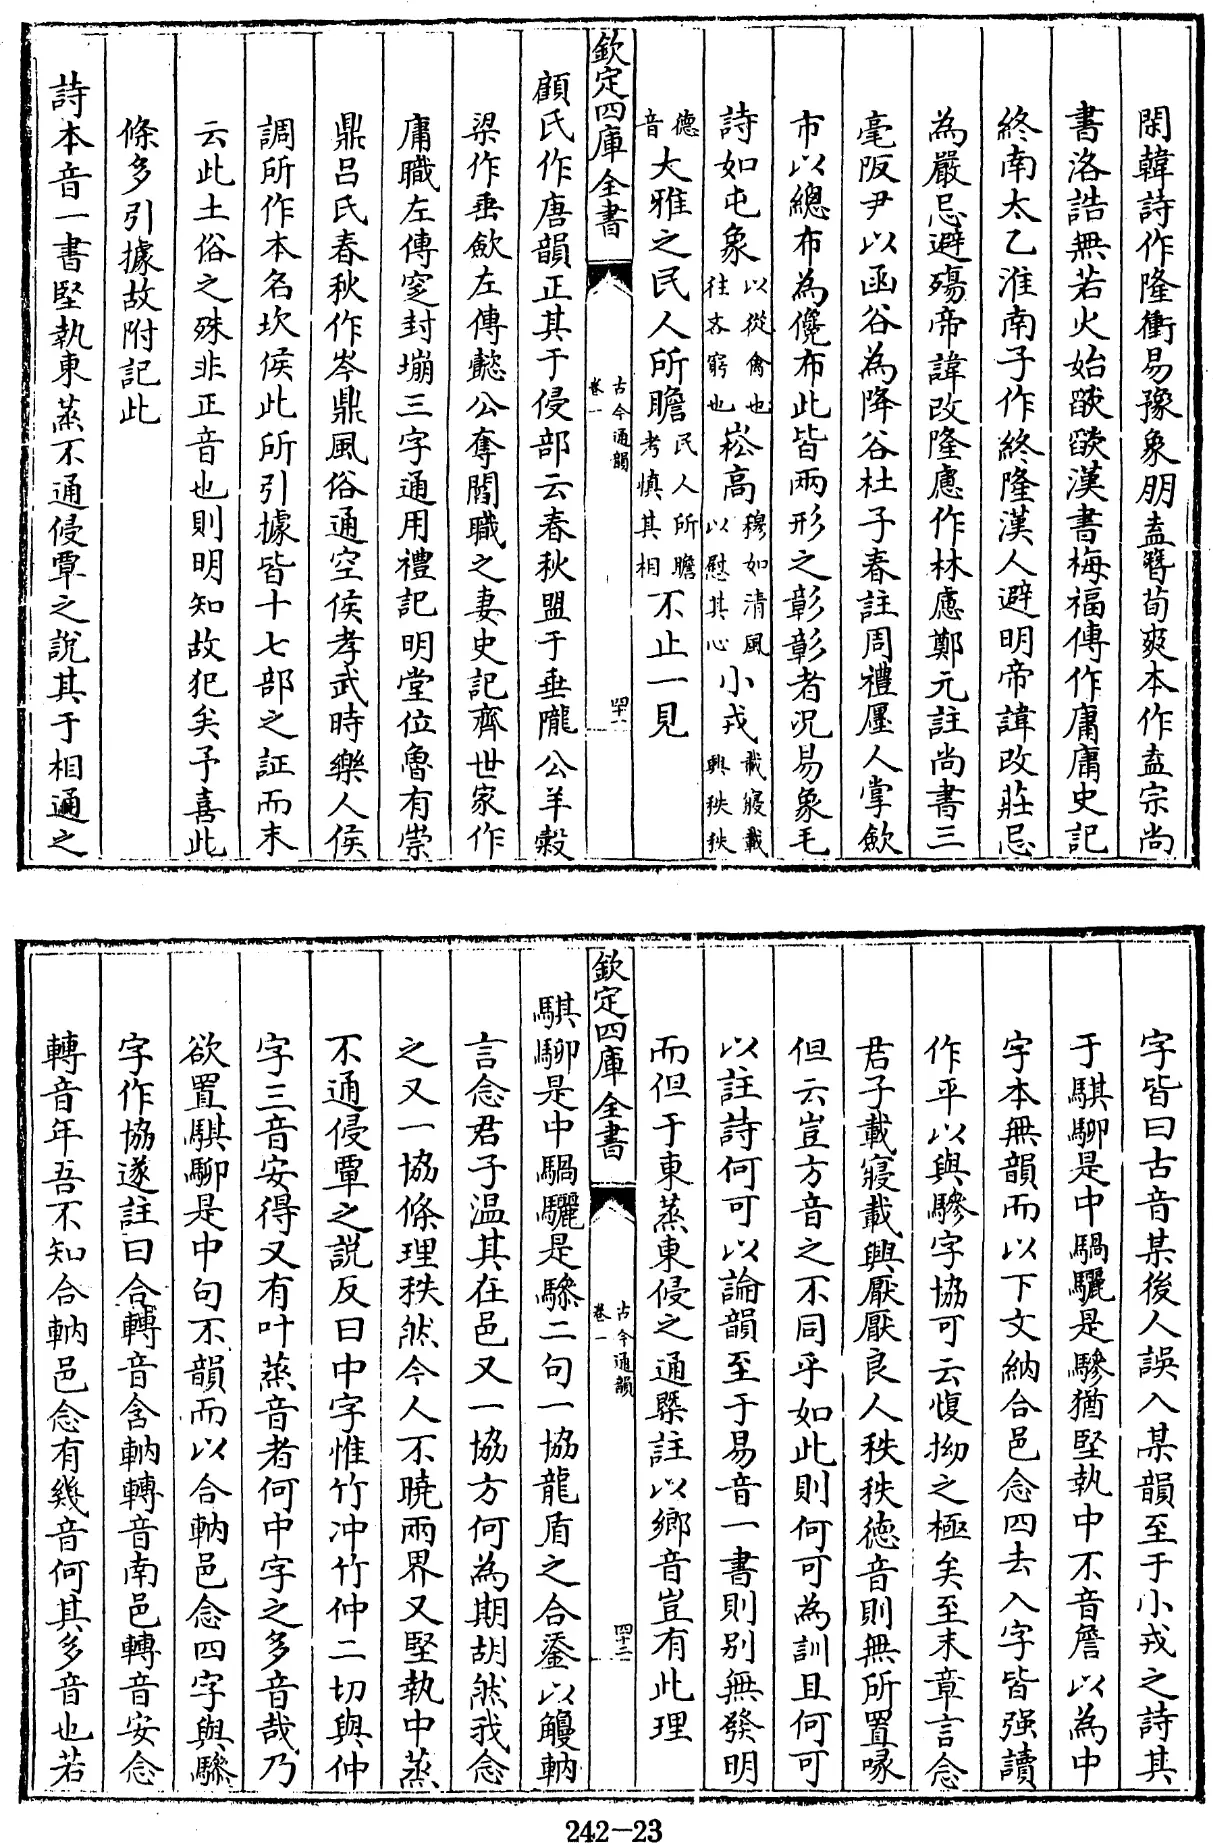 閑韓詩作隆衝易豫象朋盍簪荀爽本作盍宗尚
書洛誥無若火始燄燄漢書梅福傳作庸庸史記
終南太乙淮南子作終隆漢人避明帝諱改莊忌
為嚴忌避殤帝諱改隆慮作林慮鄭元註尚書三
毫阪尹以函谷為降谷杜子春註周禮廛人掌斂
市以總布為儳布此皆兩形之彰彰者况易象毛
詩如屯象以從禽也往吝窮也崧高穆如清風以慰其心小戎載寢載興秩秩
德音大雅之民人所瞻民人所瞻考慎其相不止一見
欽定四庫全書
古今通韻
卷一
四十一
顧氏作唐韻正其于侵部云春秋盟于垂隴公羊穀
梁作垂歛左傳懿公奪閻職之妻史記齊世家作
庸職左傳窆封堋三字通用禮記明堂位魯有崇
鼎呂氏春秋作岑鼎風俗通空侯孝武時樂人侯
調所作本名坎侯此所引據皆十七部之証而末
云此土俗之殊非正音也則明知故犯矣予喜此
條多引據故附記此
詩本音一書堅執東蒸不通侵覃之說其于相通之
字皆曰古音某後人誤入某韻至于小戎之詩其
于騏駵是中騧驪是驂猶堅執中不音詹以為中
字本無韻而以下文納合邑念四去入字皆强讀
作平以與驂字協可云愎拗之極矣至末章言念
君子載寢載興厭厭良人秩秩德音則無所置喙
但云豈方音之不同乎如此則何可為訓且何可
以註詩何可以論韻至于易音一書則别無發明
而但于東蒸東侵之通槩註以鄉音豈有此理
欽定四庫全書
古今通韻
卷一
四十二
騏駵是中騧驪是驂二句一協龍盾之合鋈以觼軜
言念君子温其在邑又一協方何為期胡然我念
之又一協條理秩然今人不曉兩界又堅執中蒸
不通侵覃之說反曰中字惟竹冲竹仲二切與仲
字三音安得又有叶蒸音者何中字之多音哉乃
欲置騏駵是中句不韻而以合軜邑念四字與驂
字作協遂註曰合轉音含軜轉音南邑轉音安念
轉音年吾不知合軜邑念有幾音何其多音也若
242-23